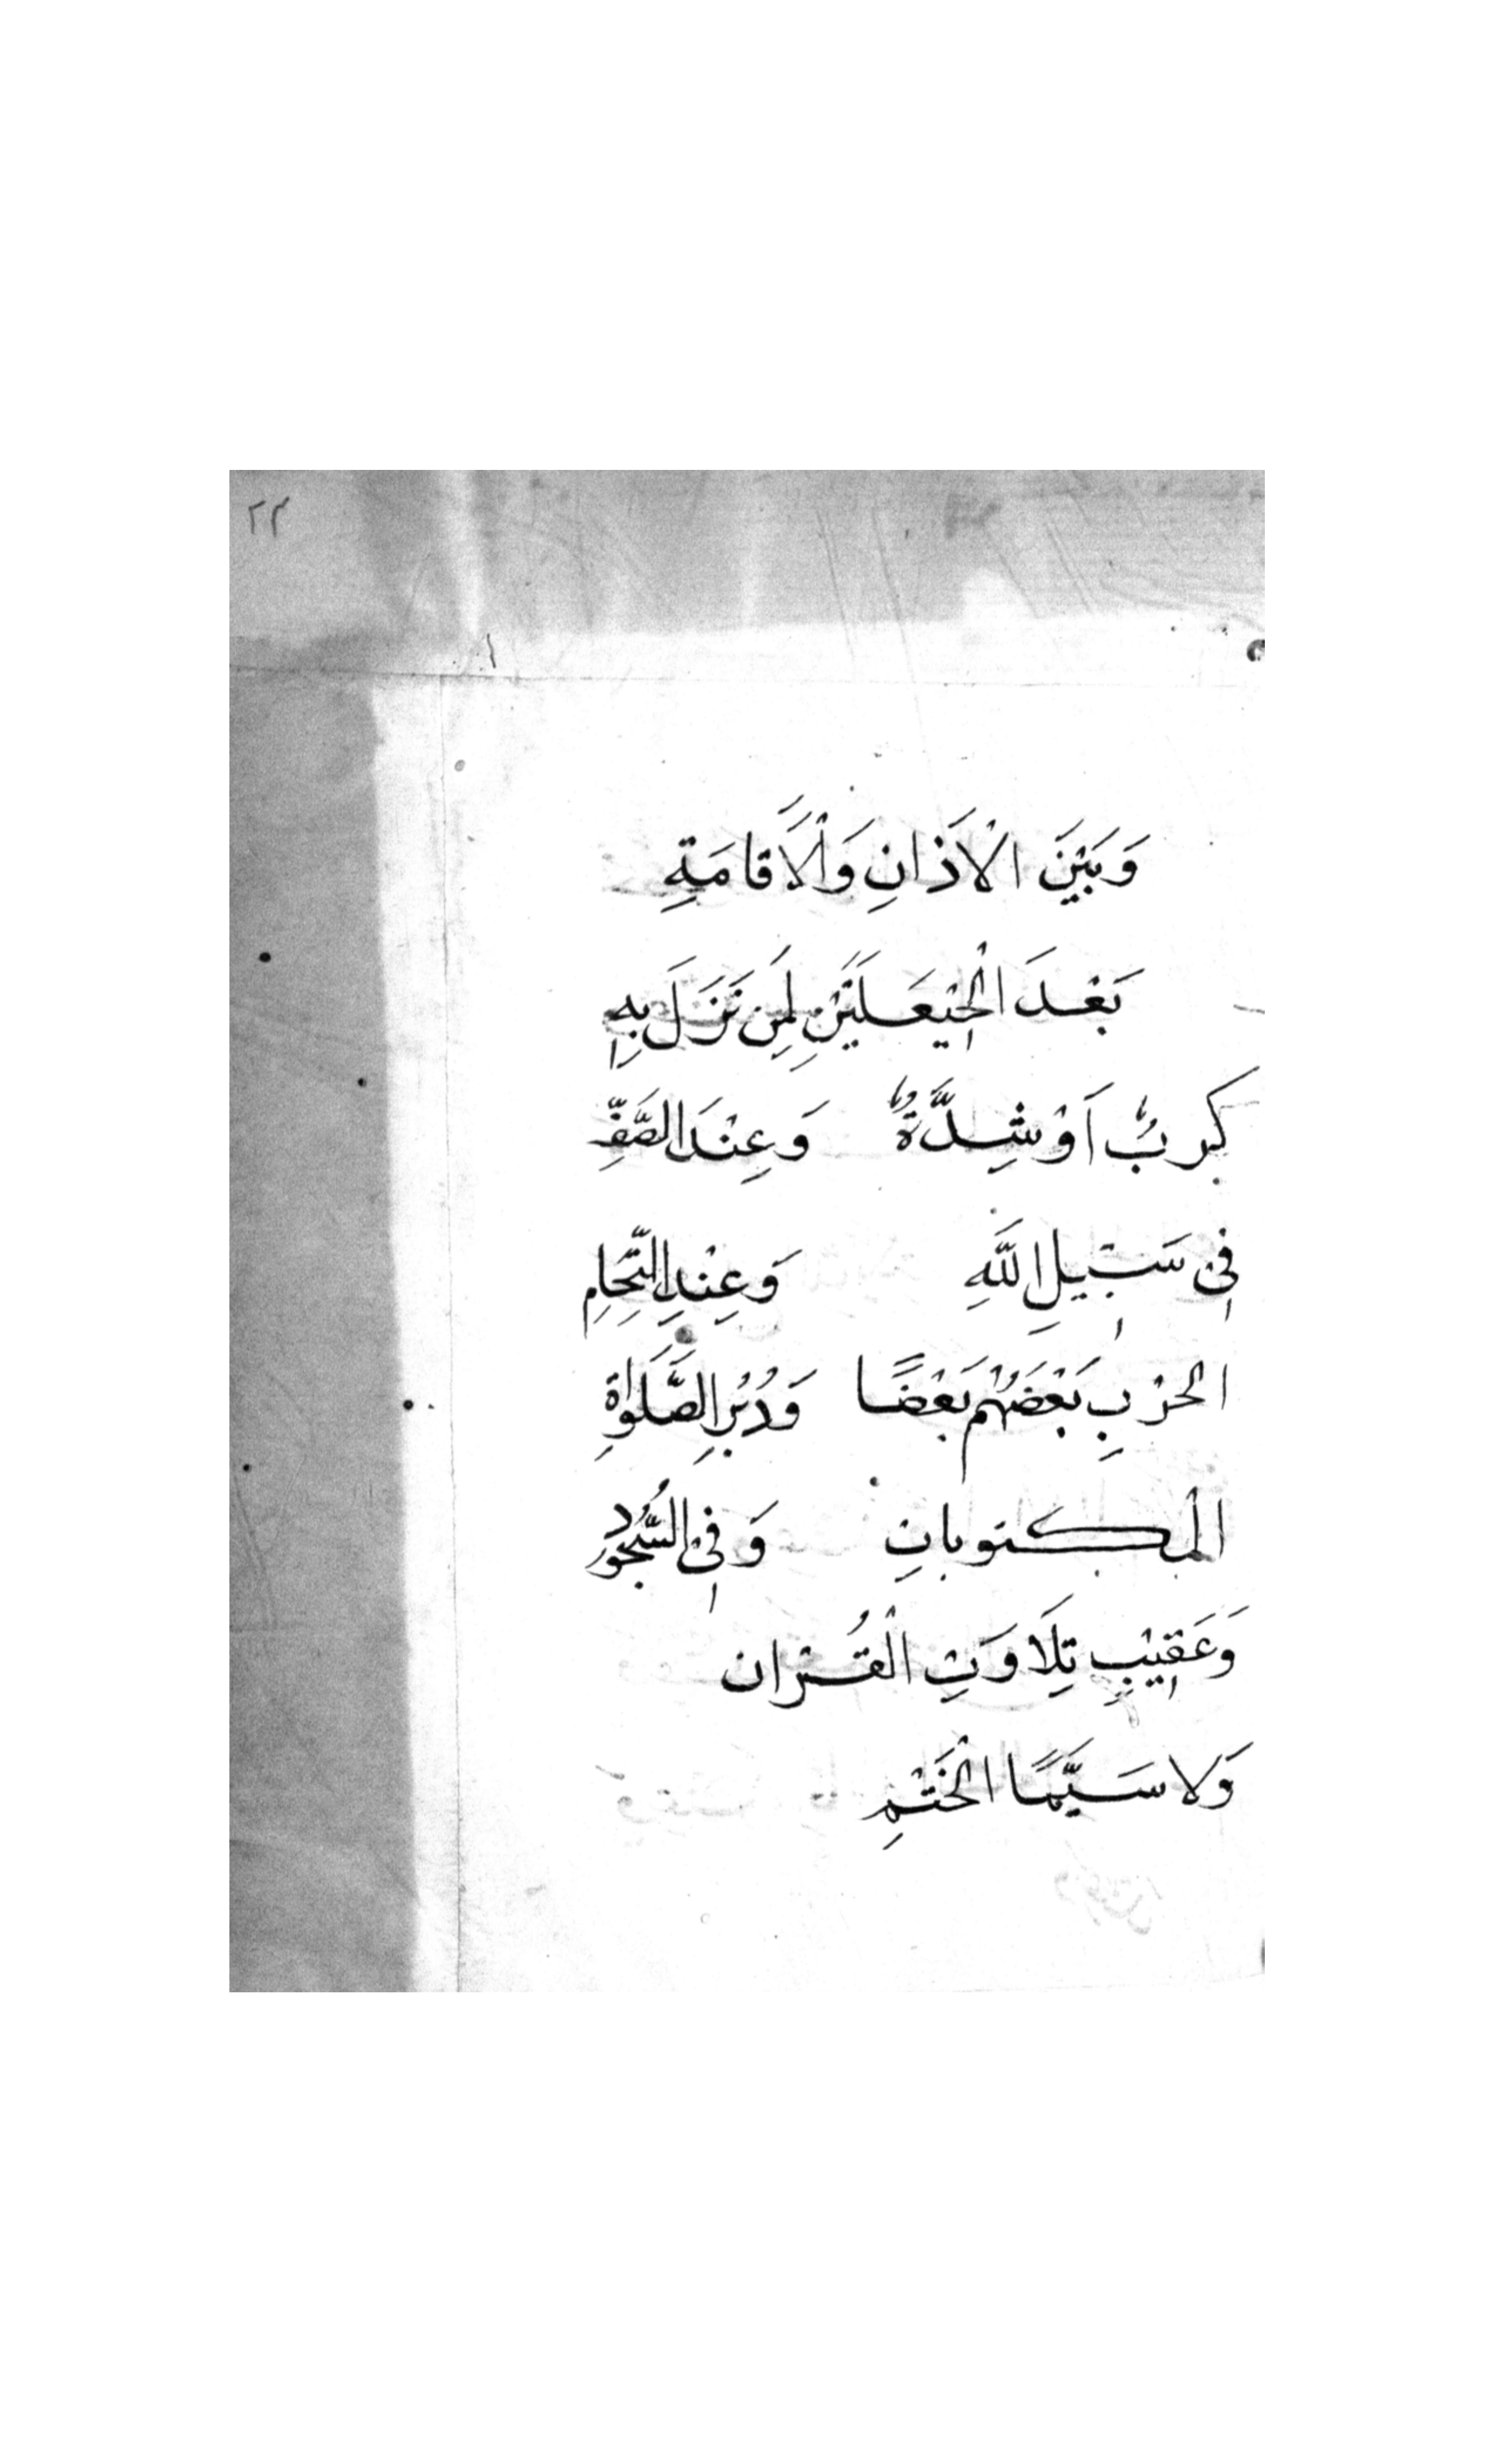 ٢٣
وَبَيْنَ الْاَذَانِ وَالْاَقَامَةِ
بَعْدَ الْحَيْعَلَتَيْنِ لِمَن نَزَلَ بِهٖ
كربٌ اَوْ شِدَّةٌ وَعِنْدَ الصَّفِّ
فِىْ سَبٖيلِ اللّٰهِ وَعِنْدِ الْتِحَامِ
الحرْبِ بَعْضَهُمْ بَعْضًا وَدُبُرِ الصَّلَوَاةِ
المكتوباتِ وَفِى السُّجُودِ
وَعَقِيْبِ تِلَاوَتِ الْقُرْان
وَلا سَيَّمَا الْخَتْمِ